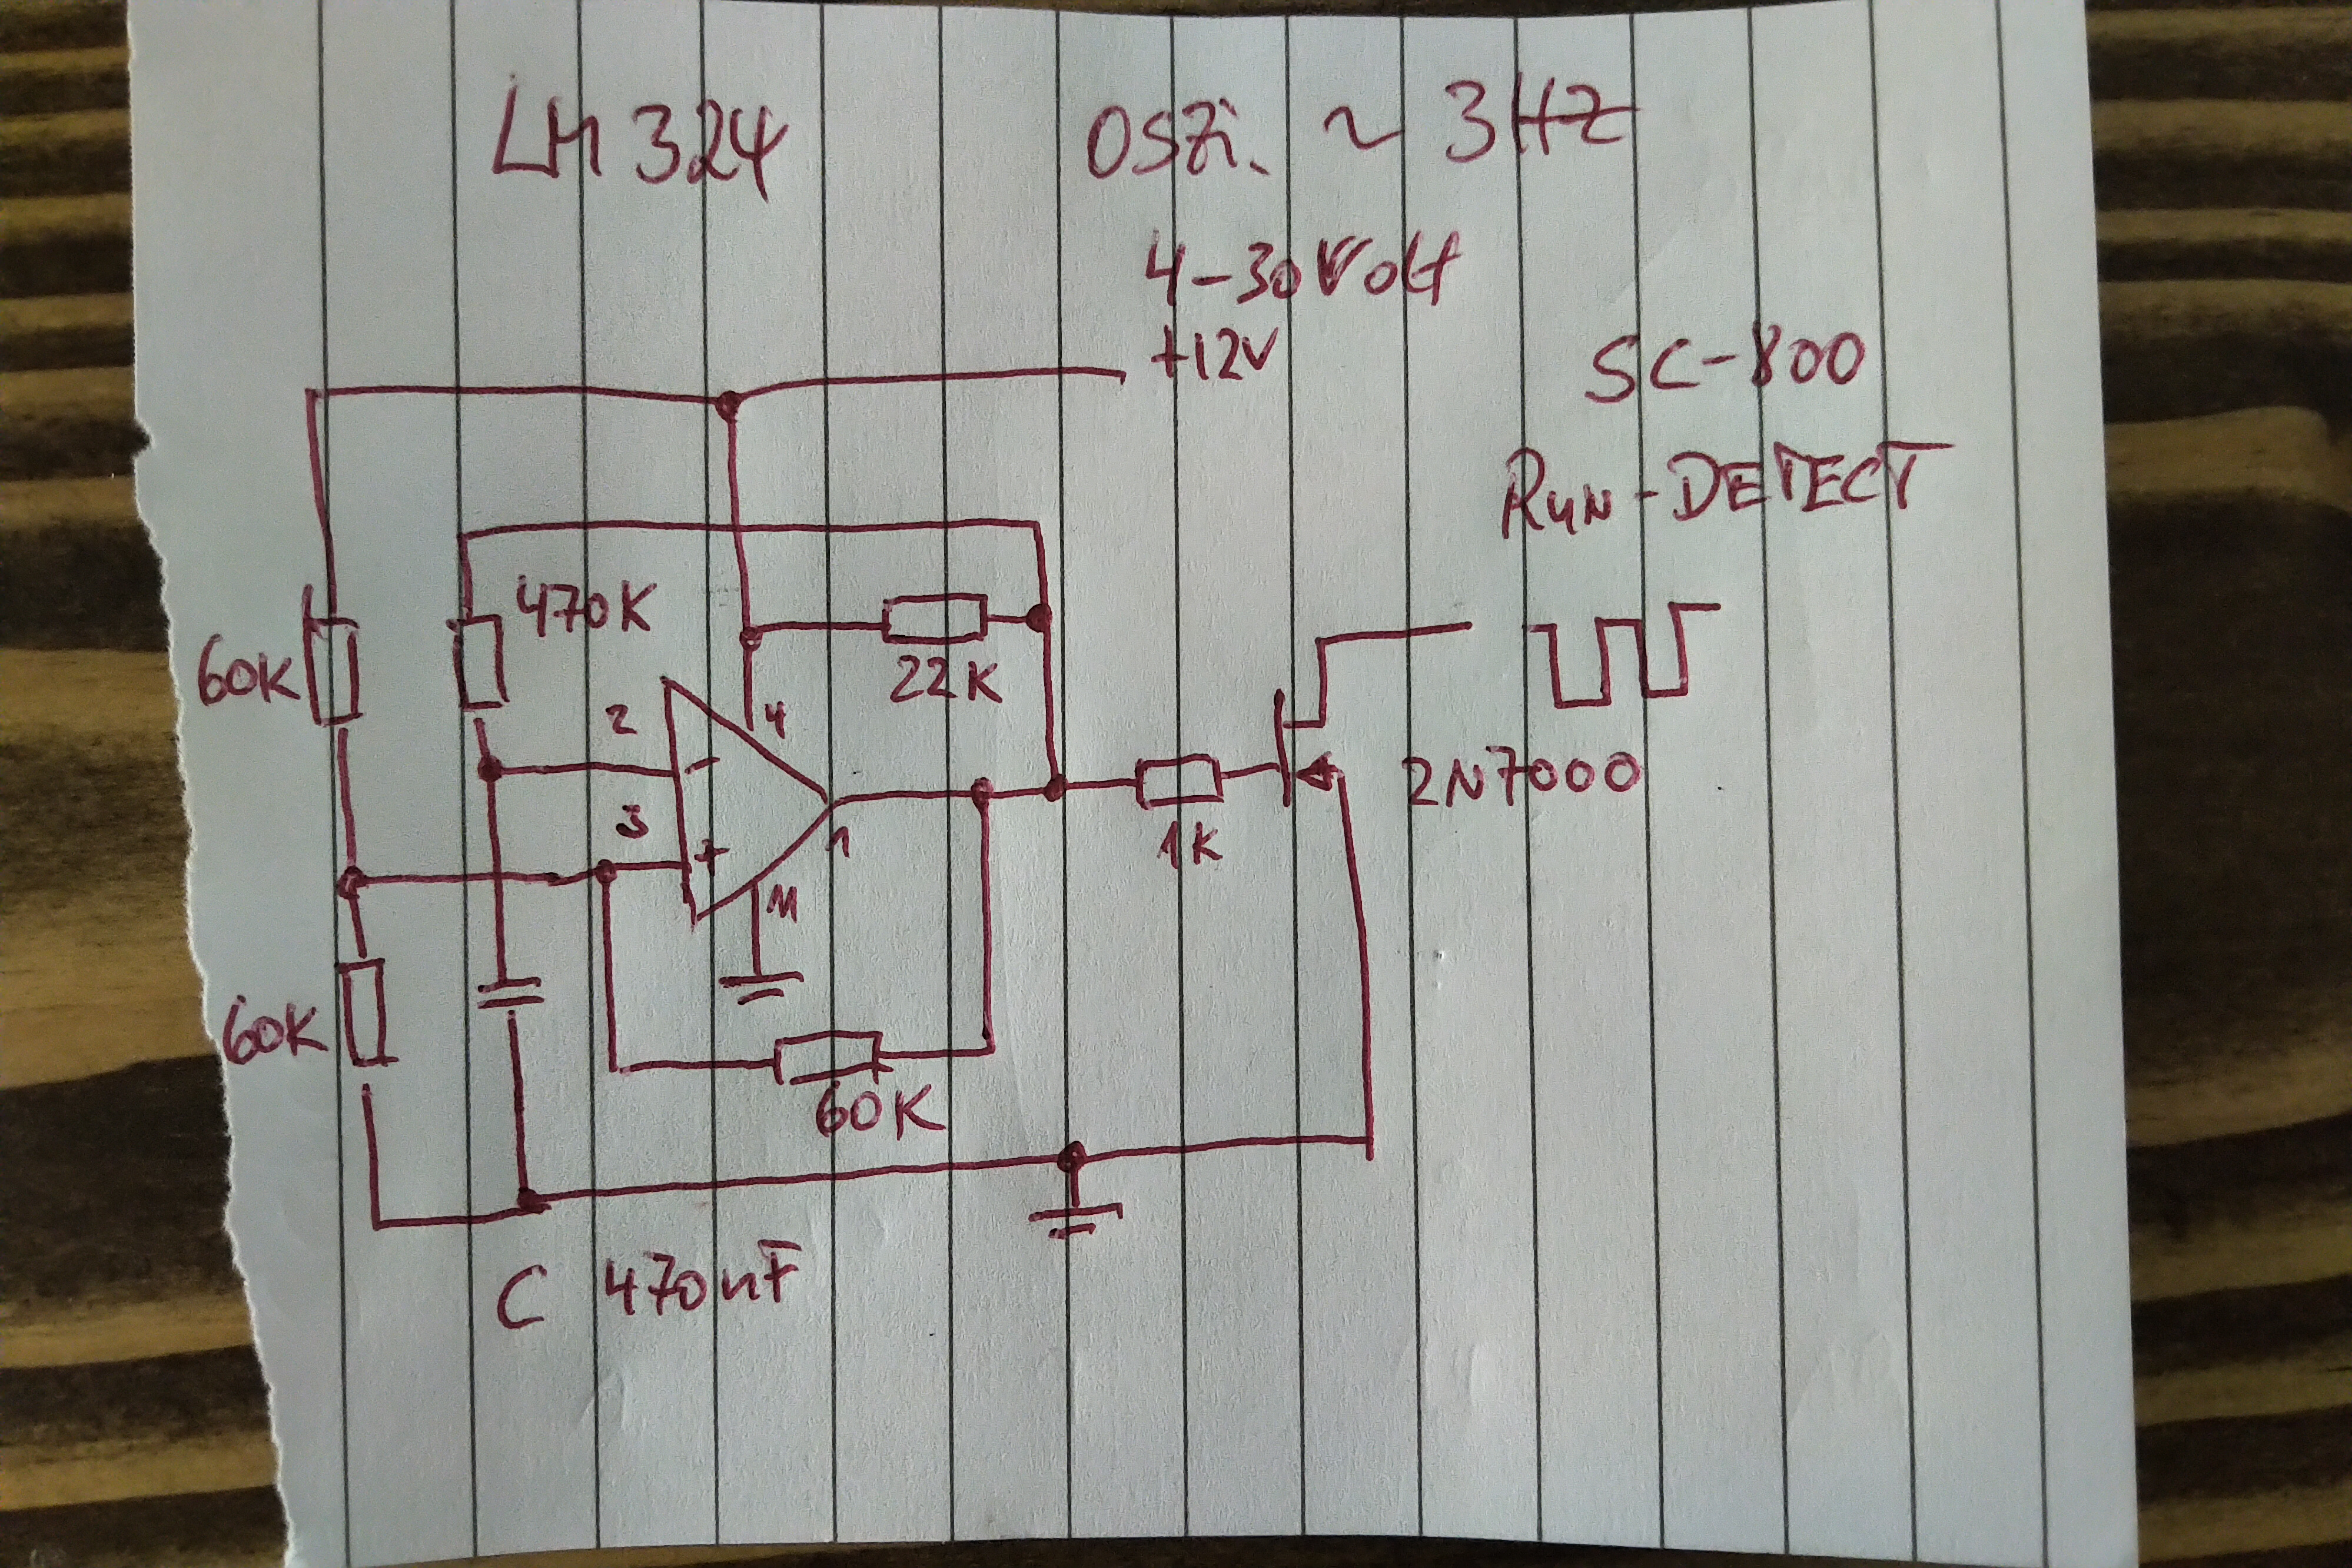 LM 324
OSZi. ~ 3HZ
4-30 Volt
+12V
SC-800
RUN-DETECT
470K
60K
22K
2
4
3
-
+
1
11
1K
2N7000
60K
60K
C 470nF